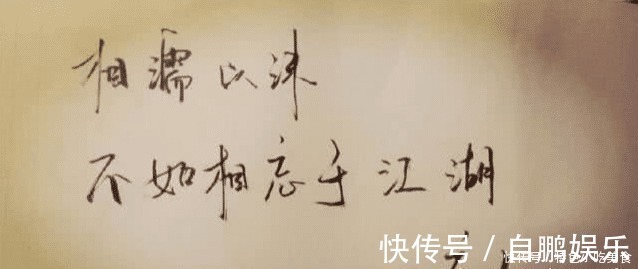 相濡以沫
不如相忘于江湖
快传号／自鹏娱乐